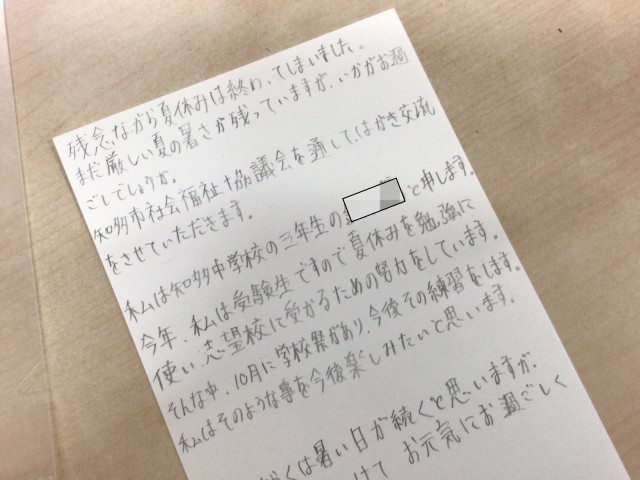 残念ながら夏休みは終わってしまいました。
まだ厳しい夏の暑さが残っていますが、いかがお過
ごしでしょうか。
知多市社会福祉協議会を通して、はがき交流
をさせていただきます。
私は知多中学校の三年生の と申します。
今年、私は受験生ですので夏休みを勉強に
使い、志望校に受かるための努力をしています。
そんな中、10月に学校祭があり、今後その練習をします。
私はそのような事を今後楽しみたいと思います。
くは暑い日が続くと思いますが、
けて お元気にお過ごしく